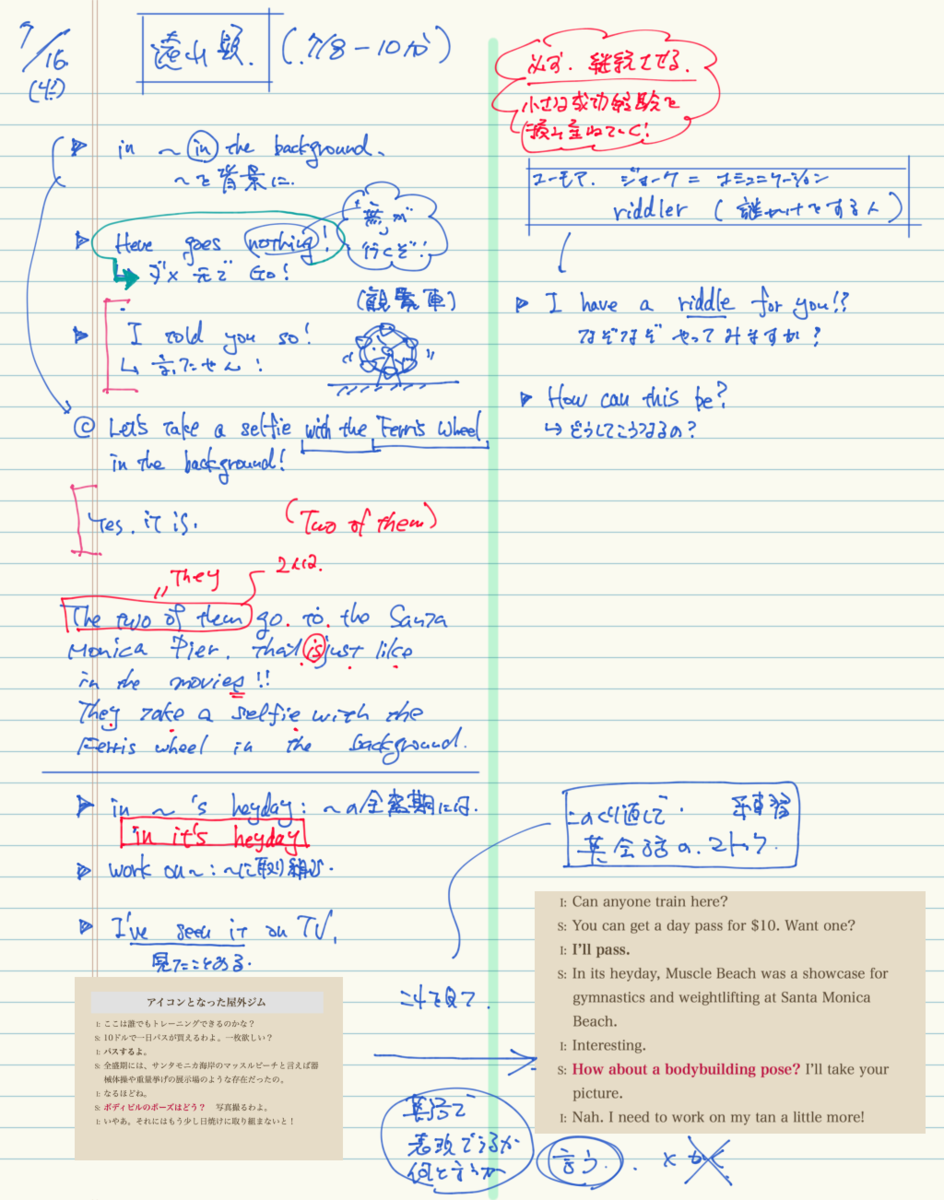 7/16
(水)
遠山顕. (7/8-10分)
▷ in ~ in the background.
~を背景に.
▷ Here goes nothing!
↳ ダメ元で Go!
"無"が
行くぞ!
▷ I told you so!
↳ 言ったでせん!
(観覧車)
© Let's take a selfie with the Ferris wheel
in the background!
Yes. it is.
(Two of them)
They
2人は.
The two of them go. to. the Santa
Monica Pier. that is just like
in the movies!!
They take a selfie with the
Ferris wheel in the background.
▷ in ~ 's heyday: ~の全盛期には.
in it's heyday
▷ work on~: ~に取り組む.
▷ I've seen it on TV,
見たことある.
アイコンとなった屋外ジム
I: ここは誰でもトレーニングできるのかな?
S: 10ドルで一日パスが買えるわよ。一枚欲しい?
I: パスするよ。
S: 全盛期には、サンタモニカ海岸のマッスルビーチと言えば器
械体操や重量挙げの展示場のような存在だったの。
I: なるほどね。
S: ボディビルのポーズはどう? 写真撮るわよ。
I: いやあ。それにはもう少し日焼けに取り組まないと!
必ず. 継続させる.
小さな成功経験を
積み重ねていく!
ユーモア. ジョーク = コミュニケーション
riddler (謎かけをする人)
▷ I have a riddle for you!!?
なぞなぞ やってみますか?
▷ How can this be?
↳ どうしてこうなるの?
くり返して. 練習
英会話の. ストック.
これを見て.
英語で
何と言うか
言う. × かく
I: Can anyone train here?
S: You can get a day pass for $10. Want one?
I: I'll pass.
S: In its heyday, Muscle Beach was a showcase for
gymnastics and weightlifting at Santa Monica
Beach.
I: Interesting.
S: How about a bodybuilding pose? I'll take your
picture.
I: Nah. I need to work on my tan a little more!